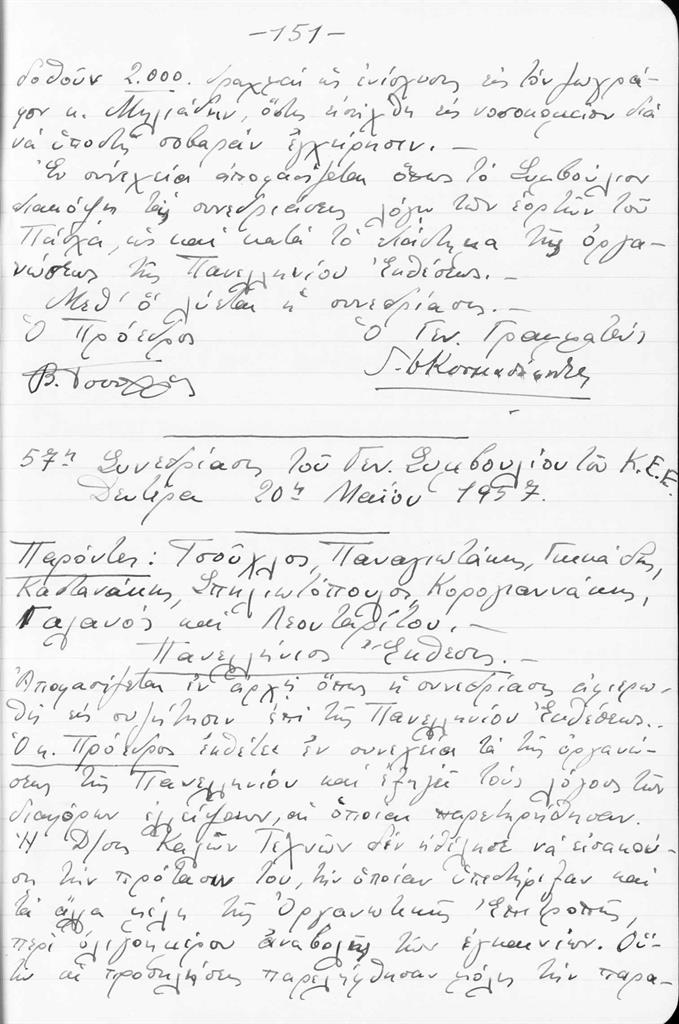 -151-
δοθοῦν 2.000. δραχμαὶ ὡς ἐνίσχυσις εἰς τὸν ζωγρά-
φον κ. Μηλιάδην, ὅστις εἰσήχθη εἰς νοσοκομεῖον διὰ
νὰ ὑποστῇ σοβαρὰν ἐγχείρησιν. —
Ἐν συνεχείᾳ ἀποφασίζεται ὅπως τὸ Συμβούλιον
διακόψῃ τὰς συνεδριάσεις λόγῳ τῶν ἑορτῶν τοῦ
Πάσχα, ὡς καὶ κατὰ τὸ διάστημα τῆς ὀργα-
νώσεως τῆς Πανελληνίου Ἐκθέσεως. —
Μεθ' ὃ λύεται ἡ συνεδρίασις. —
Ὁ Πρόεδρος Ὁ Γεν. Γραμματεὺς
Β. Τσούχλος
57η Συνεδρίασις τοῦ Γεν. Συμβουλίου τοῦ Κ.Ε.Ε.
Δευτέρα 20ὴ Μαΐου 1957.
Παρόντες: Τσοῦχλος, Παναγιωτάκης, Γκικάδης,
Καστανάκης, Σπηλιωτόπουλος, Κορογιαννάκης,
Γαλανός καὶ Λεονταρίτου. —
Πανελλήνιος Ἔκθεσις. —
Ἀποφασίζεται ἐν ἀρχῇ ὅπως ἡ συνεδρίασις ἀφιερω-
θῇ εἰς συζήτησιν ἐπὶ τῆς Πανελληνίου Ἐκθέσεως..
Ὁ κ. Πρόεδρος ἐκθέτει ἐν συνεχείᾳ τὰ τῆς ὀργανώ-
σεως τῆς Πανελληνίου καὶ ἐξηγεῖ τοὺς λόγους τῶν
διαφόρων ἐλλείψεων, αἱ ὁποῖαι παρετηρήθησαν.
Ἡ Δ/σις Καλῶν Τεχνῶν δὲν ἠθέλησε νὰ εἰσακού-
σῃ τὴν πρότασιν του, τὴν ὁποίαν ὑπεστήριξαν καὶ
τὰ ἄλλα μέλη τῆς Ὀργανωτικῆς Ἐπιτροπῆς,
περὶ ὀλιγοημέρου ἀναβολῆς τῶν ἐγκαινίων. Οὕ-
τω αἱ προσκλήσεις παρελήφθησαν μόλις τὴν παρα-